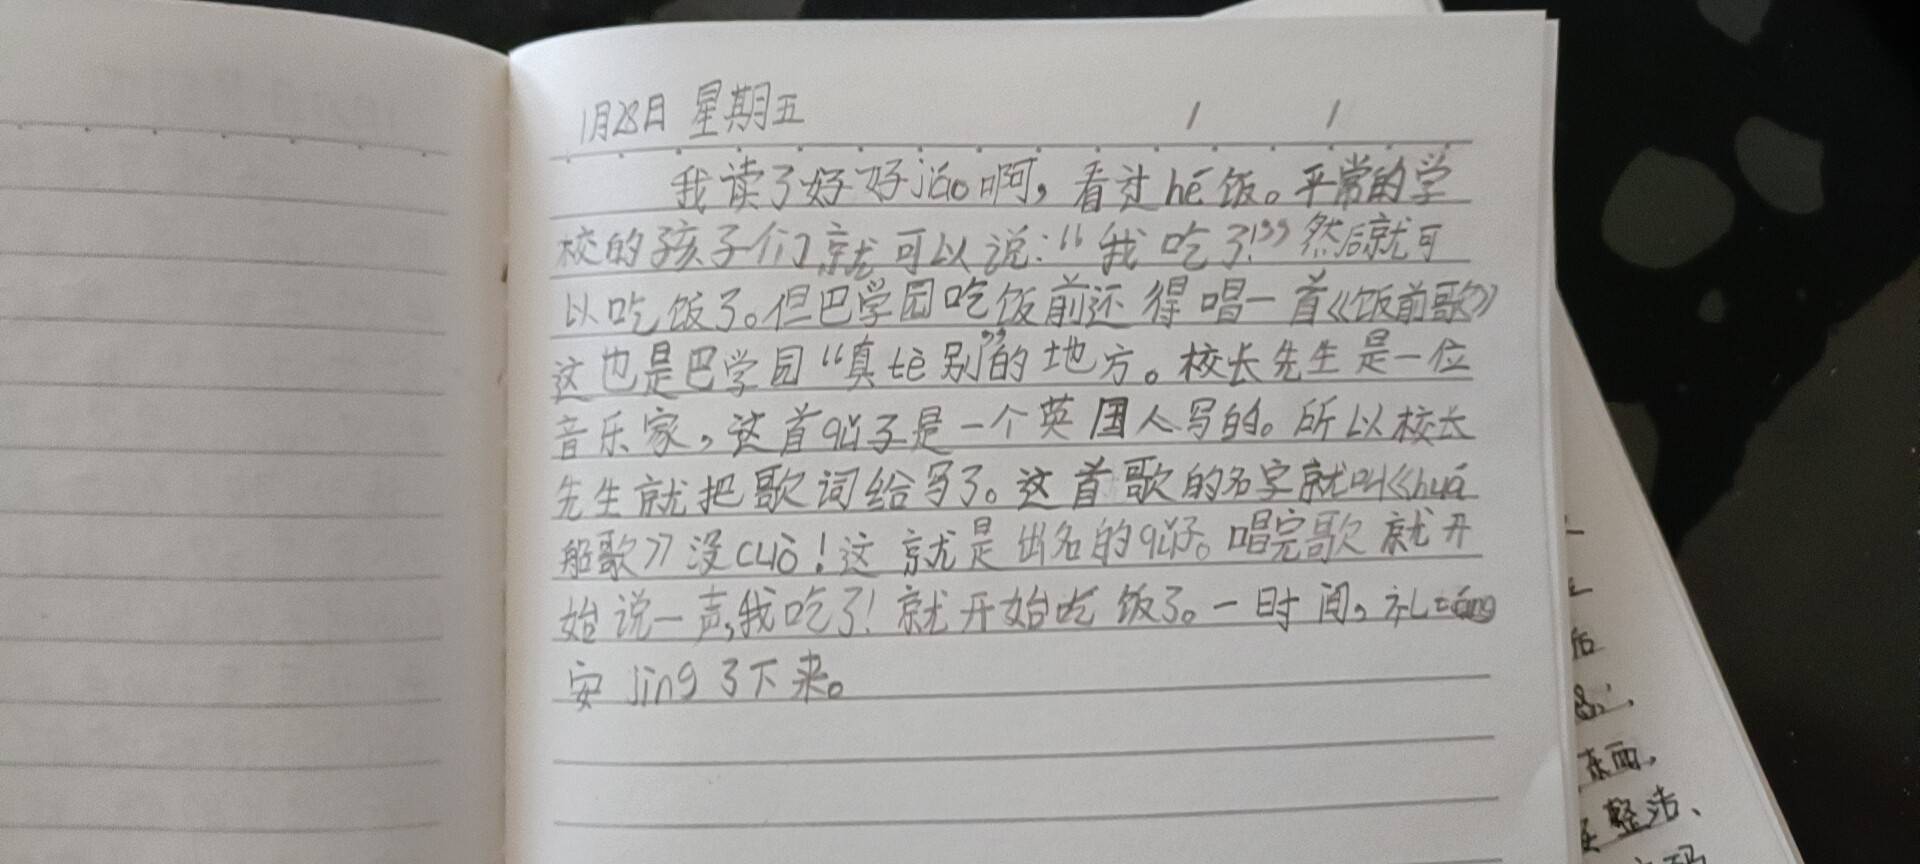 1月28日 星期五
我读了好好jiáo啊，看过hé饭。平常的学
校的孩子们就可以说：“我吃了！”然后就可
以吃饭了。但巴学园吃饭前还得唱一首《饭前歌》
这也是巴学园“真tè别”的地方。校长先生是一位
音乐家，这首qǔ子是一个英国人写的。所以校长
先生就把歌词给写了。这首歌的名字就叫《huá
船歌》没cuò！这就是出名的qǔ子。唱完歌就开
始说一声，我吃了！就开始吃饭了。一时间，礼táng
安jìng了下来。
东西，
整洁、